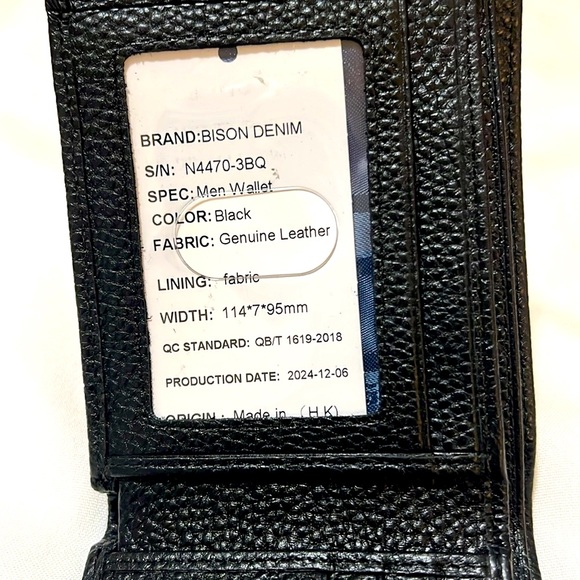 BRAND:BISON DENIM
S/N: N4470-3BQ
SPEC: Men Wallet
COLOR: Black
FABRIC: Genuine Leather
LINING: fabric
WIDTH: 114*7*95mm
QC STANDARD: QB/T 1619-2018
PRODUCTION DATE: 2024-12-06
ORIGIN: Made in （H.K)